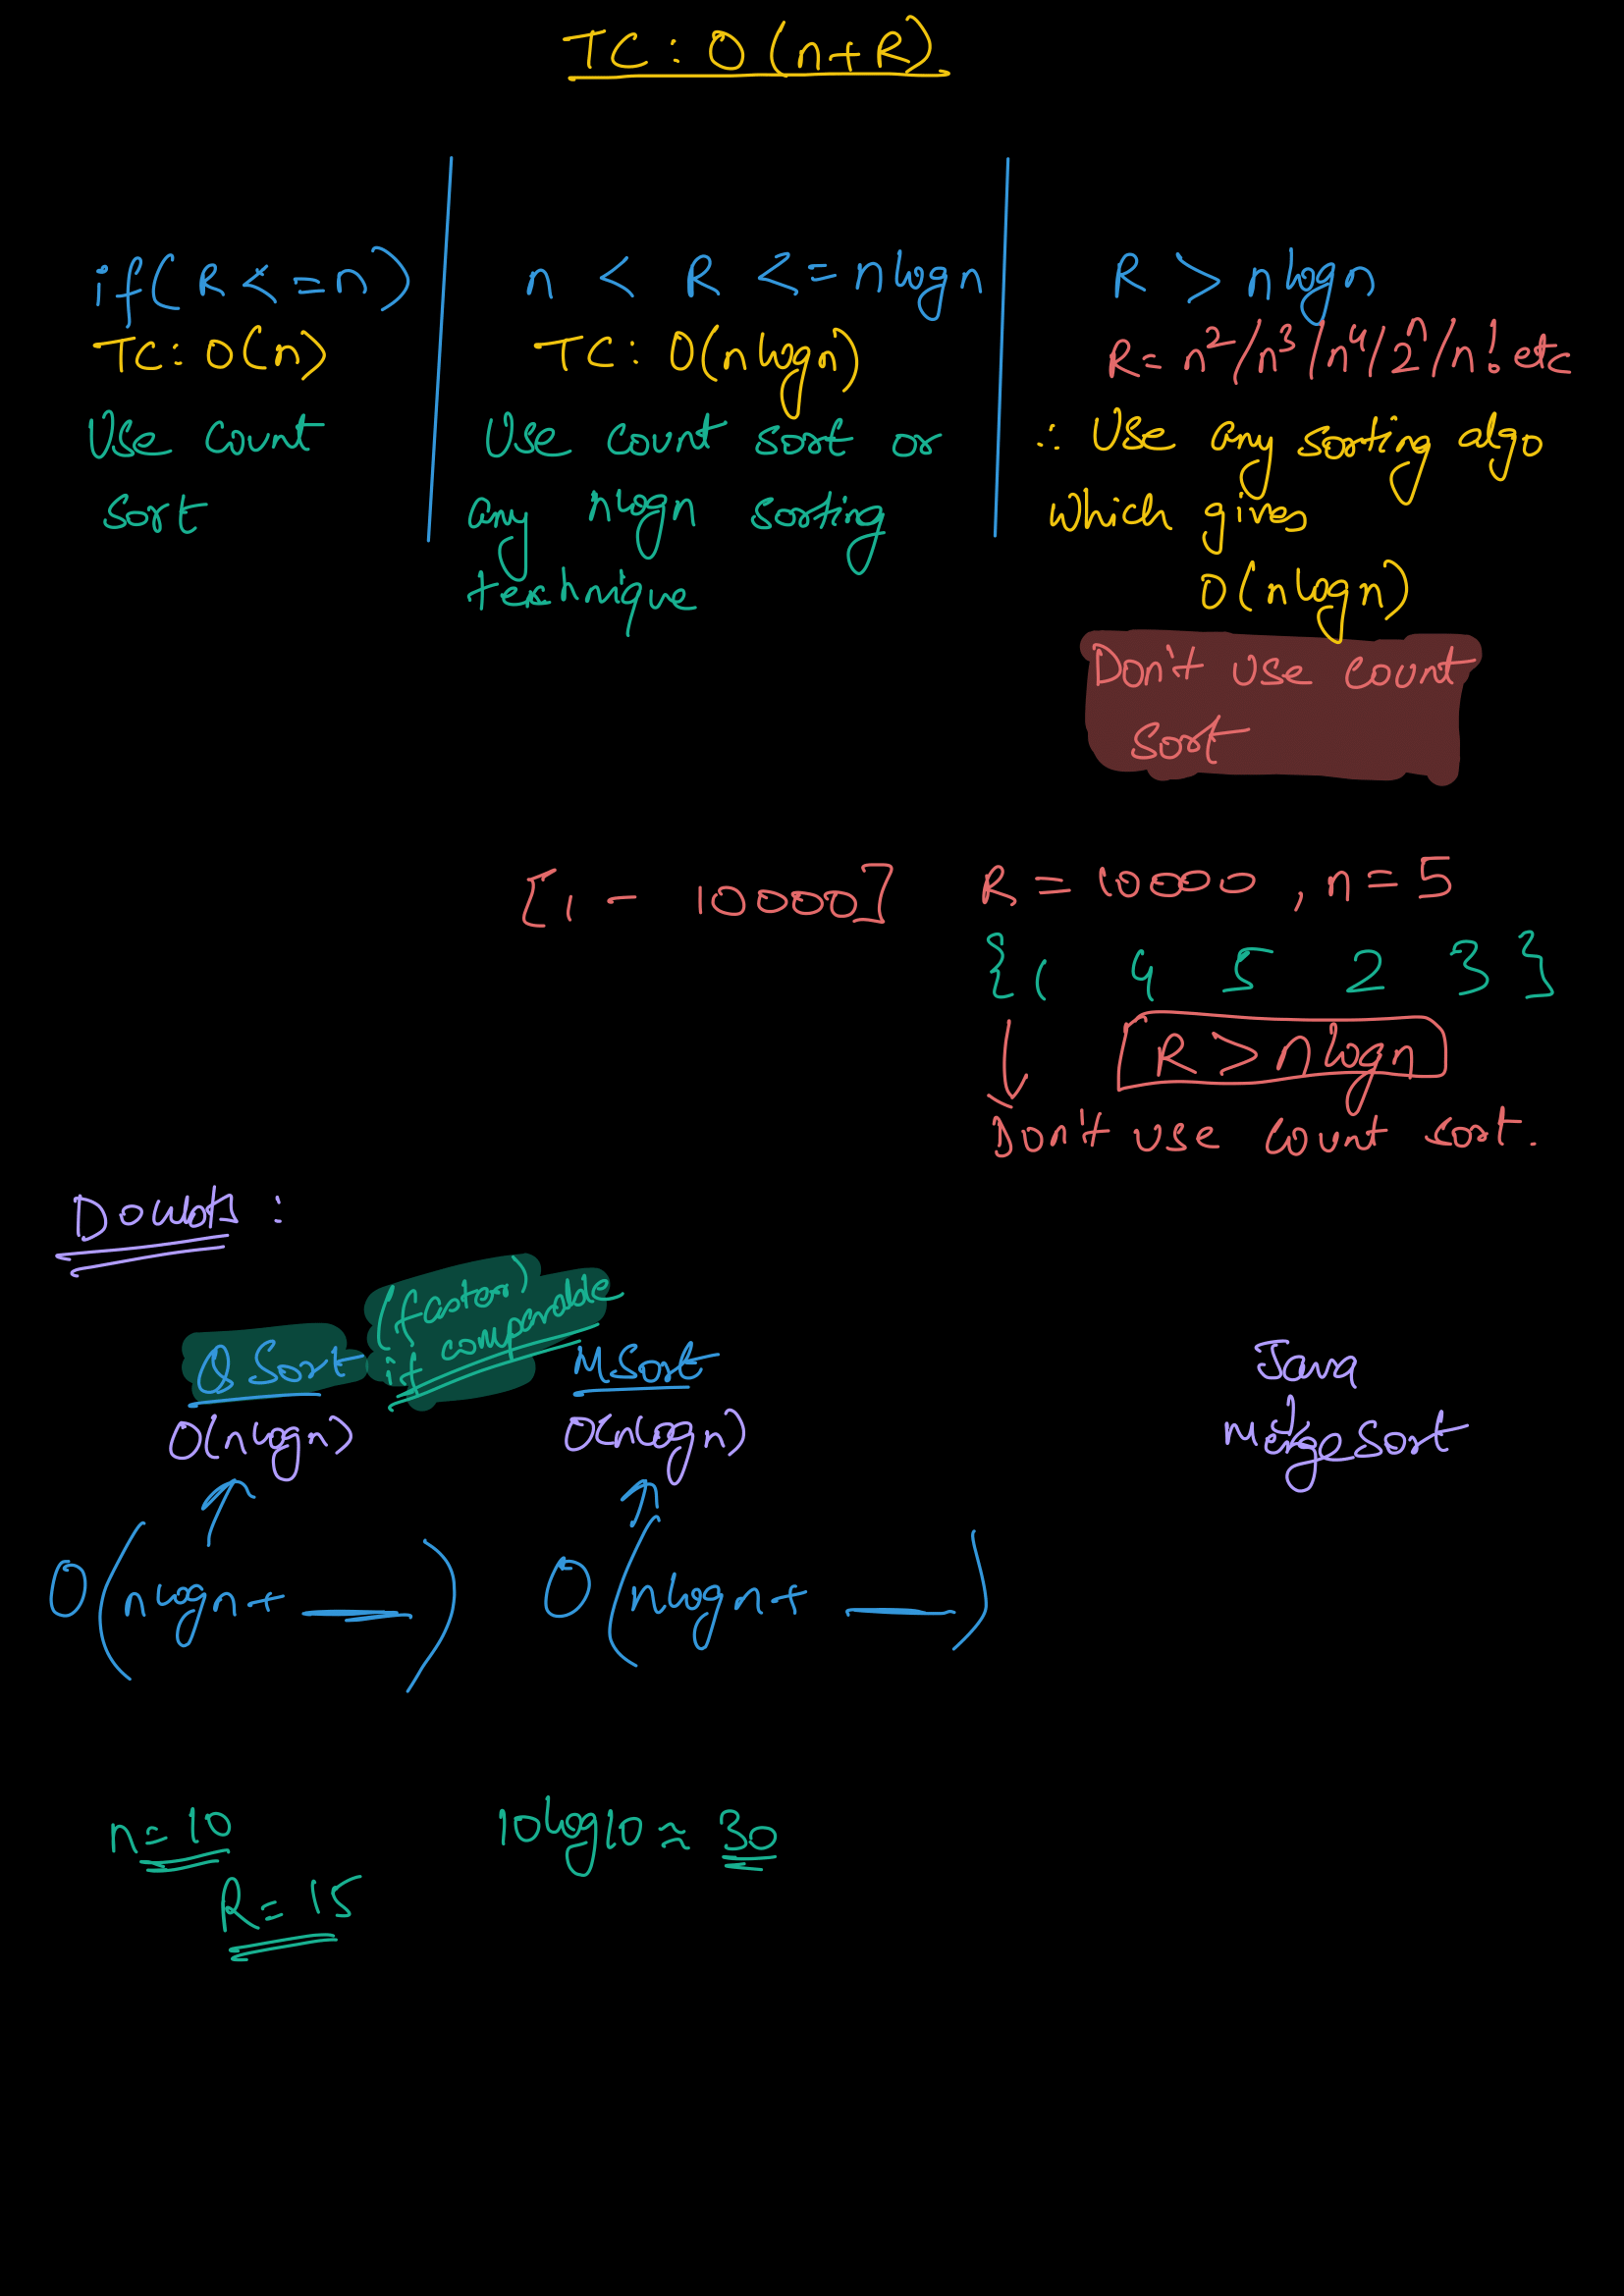 TC: O(n+R)
if(R<=n)
TC: O(n)
Use count
sort
n < R <= nlogn
TC: O(nlogn)
Use count sort or
any nlogn sorting
technique
R > nlogn
R= n²/n³/n⁴/2ⁿ/n! etc
∴ Use any sorting algo
which gives
O(nlogn)
Don't use count
sort
[1 - 10000] R = 10000, n=5
{1 4 5 2 3}
R > nlogn
Don't use count sort.
Doubts:
Q Sort (faster)
if comparable
MSort
O(nlogn)
O(nlogn)
Java
↓
Merge Sort
O(nlogn + __)
O(nlogn + __)
n=10
R=15
10log10 ≈ 30